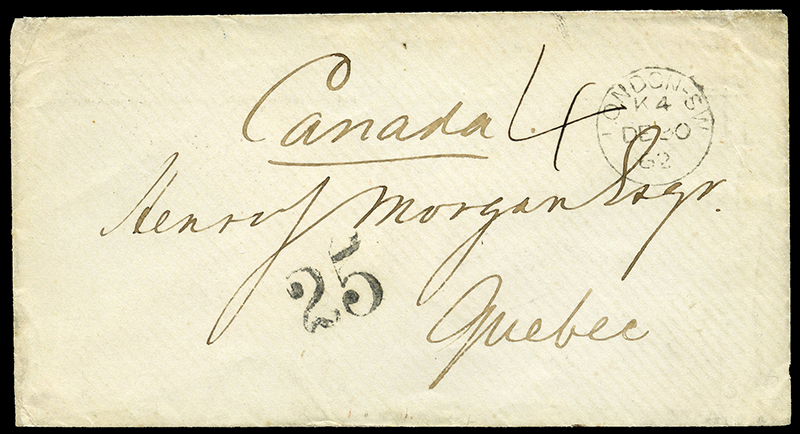 Canada 4
LONDON-SW
K4
DE 20
62
Henry J Morgan Esqr.
25
Quebec